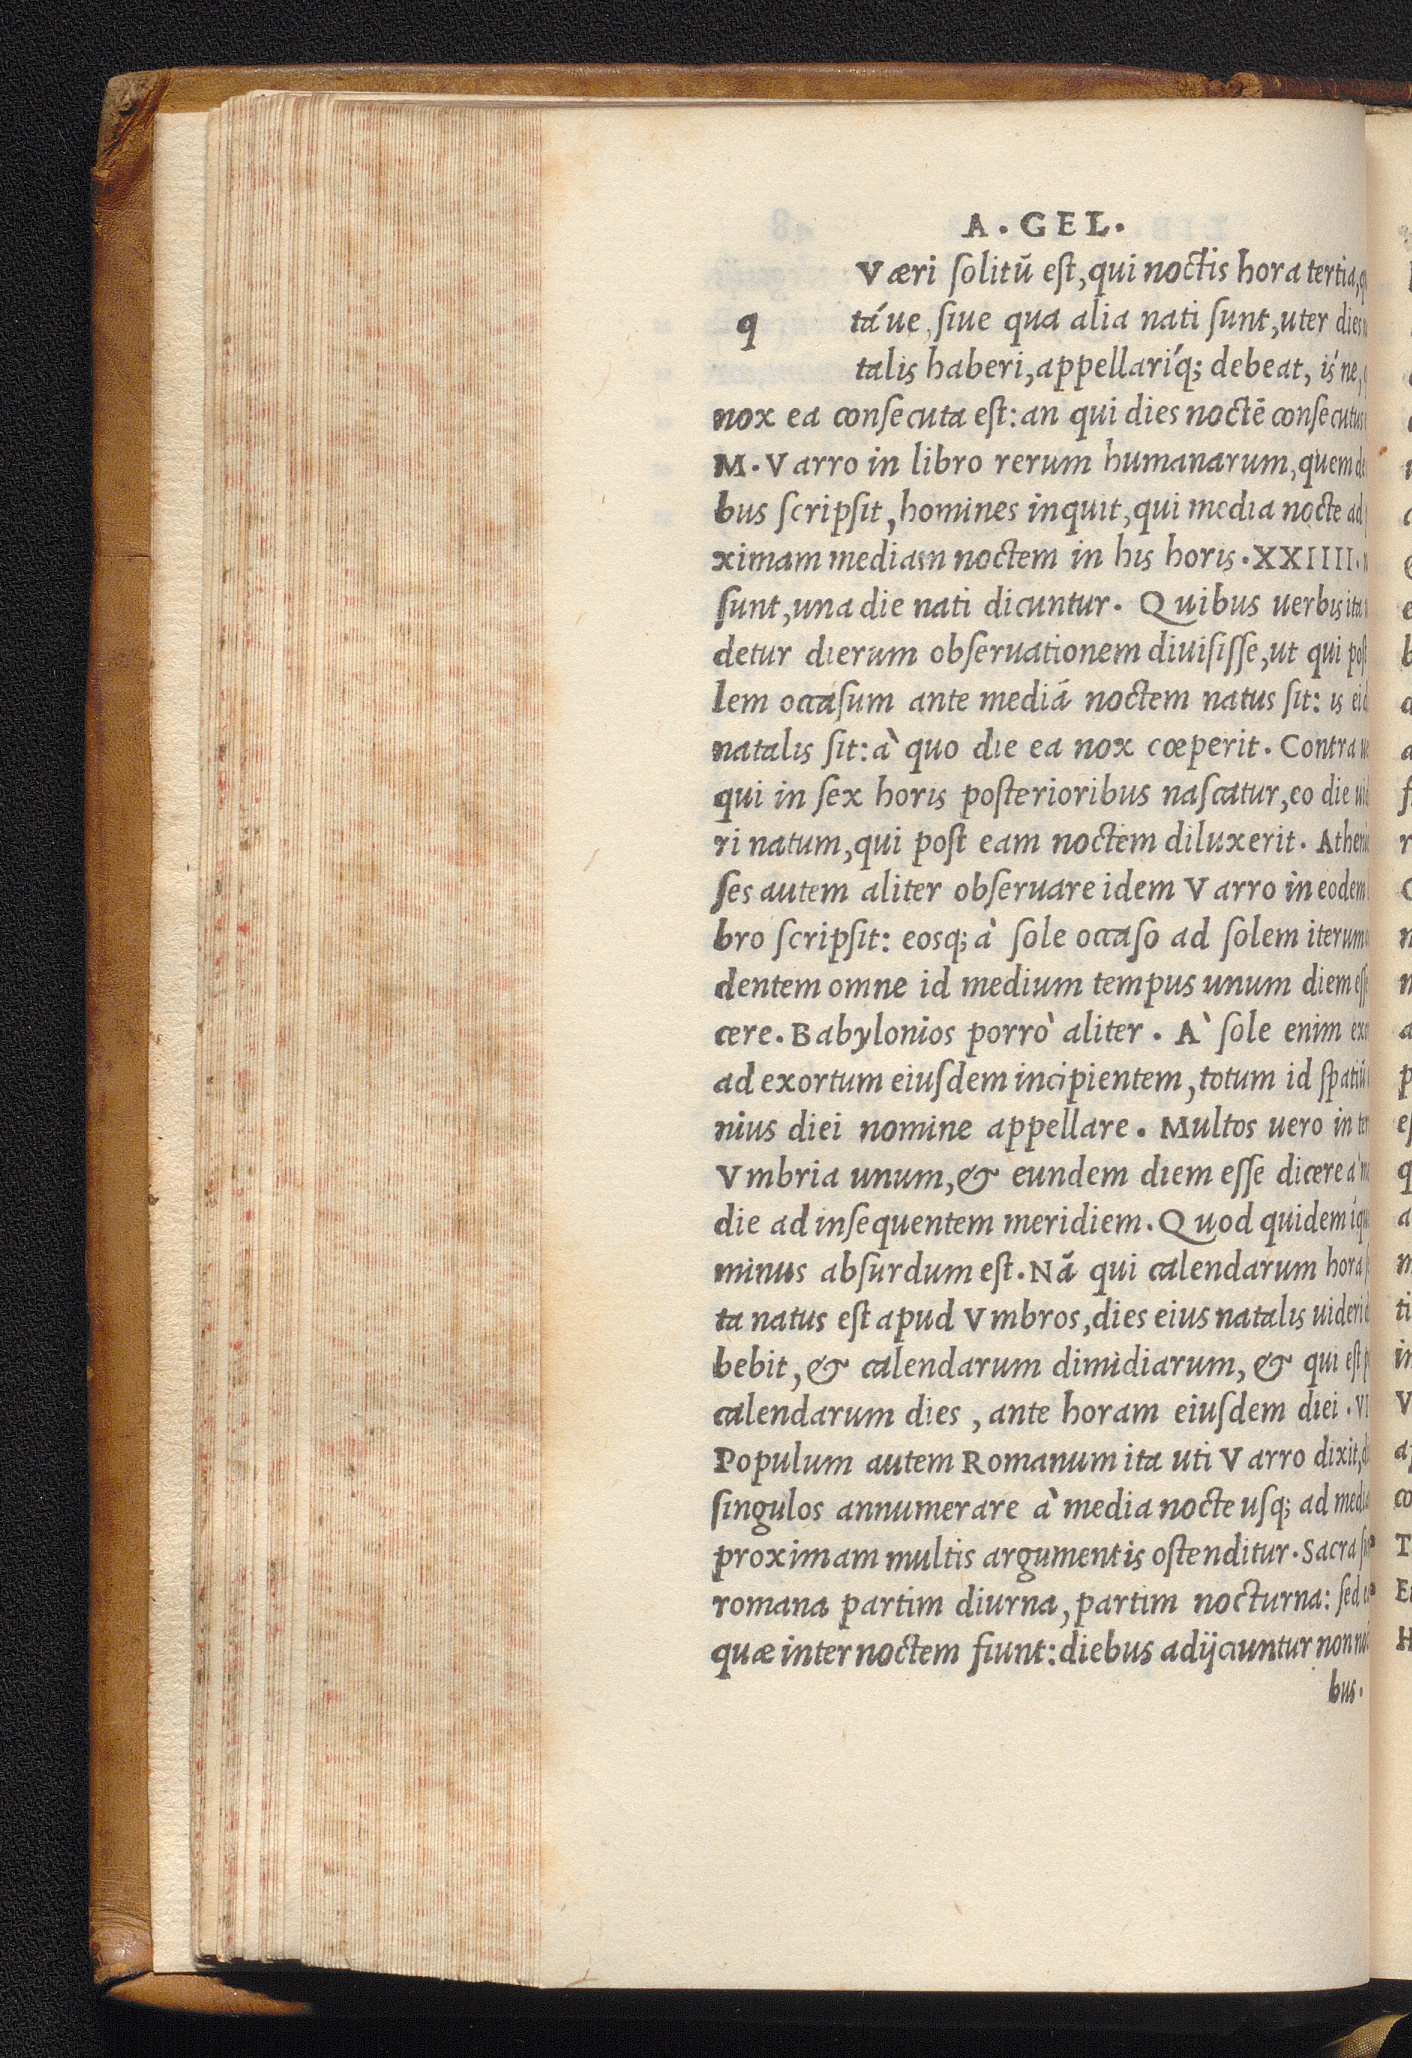 A. GEL.
Væri solitū est, qui noctis hora tertia,
q
tá'ue, siue qua alia nati sunt, uter dies
talis haberi, appellari'q; debeat, is'ne,
nox ea consecuta est: an qui dies noctē consecutus
M. Varro in libro rerum humanarum, quem de
bus scripsit, homines inquit, qui media nocte ad
ximam mediam noctem in his horis. XXIIII.
sunt, una die nati dicuntur. Quibus uerbis ita
detur dierum obseruationem diuisisse, ut qui post
lem occasum ante mediā noctem natus sit: is
natalis sit: à quo die ea nox cœperit. Contra
qui in sex horis posterioribus nascatur, eo die
ri natum, qui post eam noctem diluxerit. Atheni
ses autem aliter obseruare idem Varro in eodem
bro scripsit: eosq; à sole occaso ad solem iterum
dentem omne id medium tempus unum diem
cere. Babylonios porrò aliter. À sole enim
ad exortum eiusdem incipientem, totum id spatiū
nius diei nomine appellare. Multos uero in
Vmbria unum, & eundem diem esse dicere à
die ad insequentem meridiem. Quod quidem
minus absurdum est. Nā qui calendarum hora
ta natus est apud Vmbros, dies eius natalis uideri
bebit, & calendarum dimidiarum, & qui est
calendarum dies, ante horam eiusdem diei. VI
Populum autem Romanum ita uti Varro dixit,
singulos annumerare à media nocte usq; ad
proximam multis argumentis ostenditur. Sacra
romana partim diurna, partim nocturna: sed
quæ inter noctem fiunt: diebus adijciuntur non
bus.